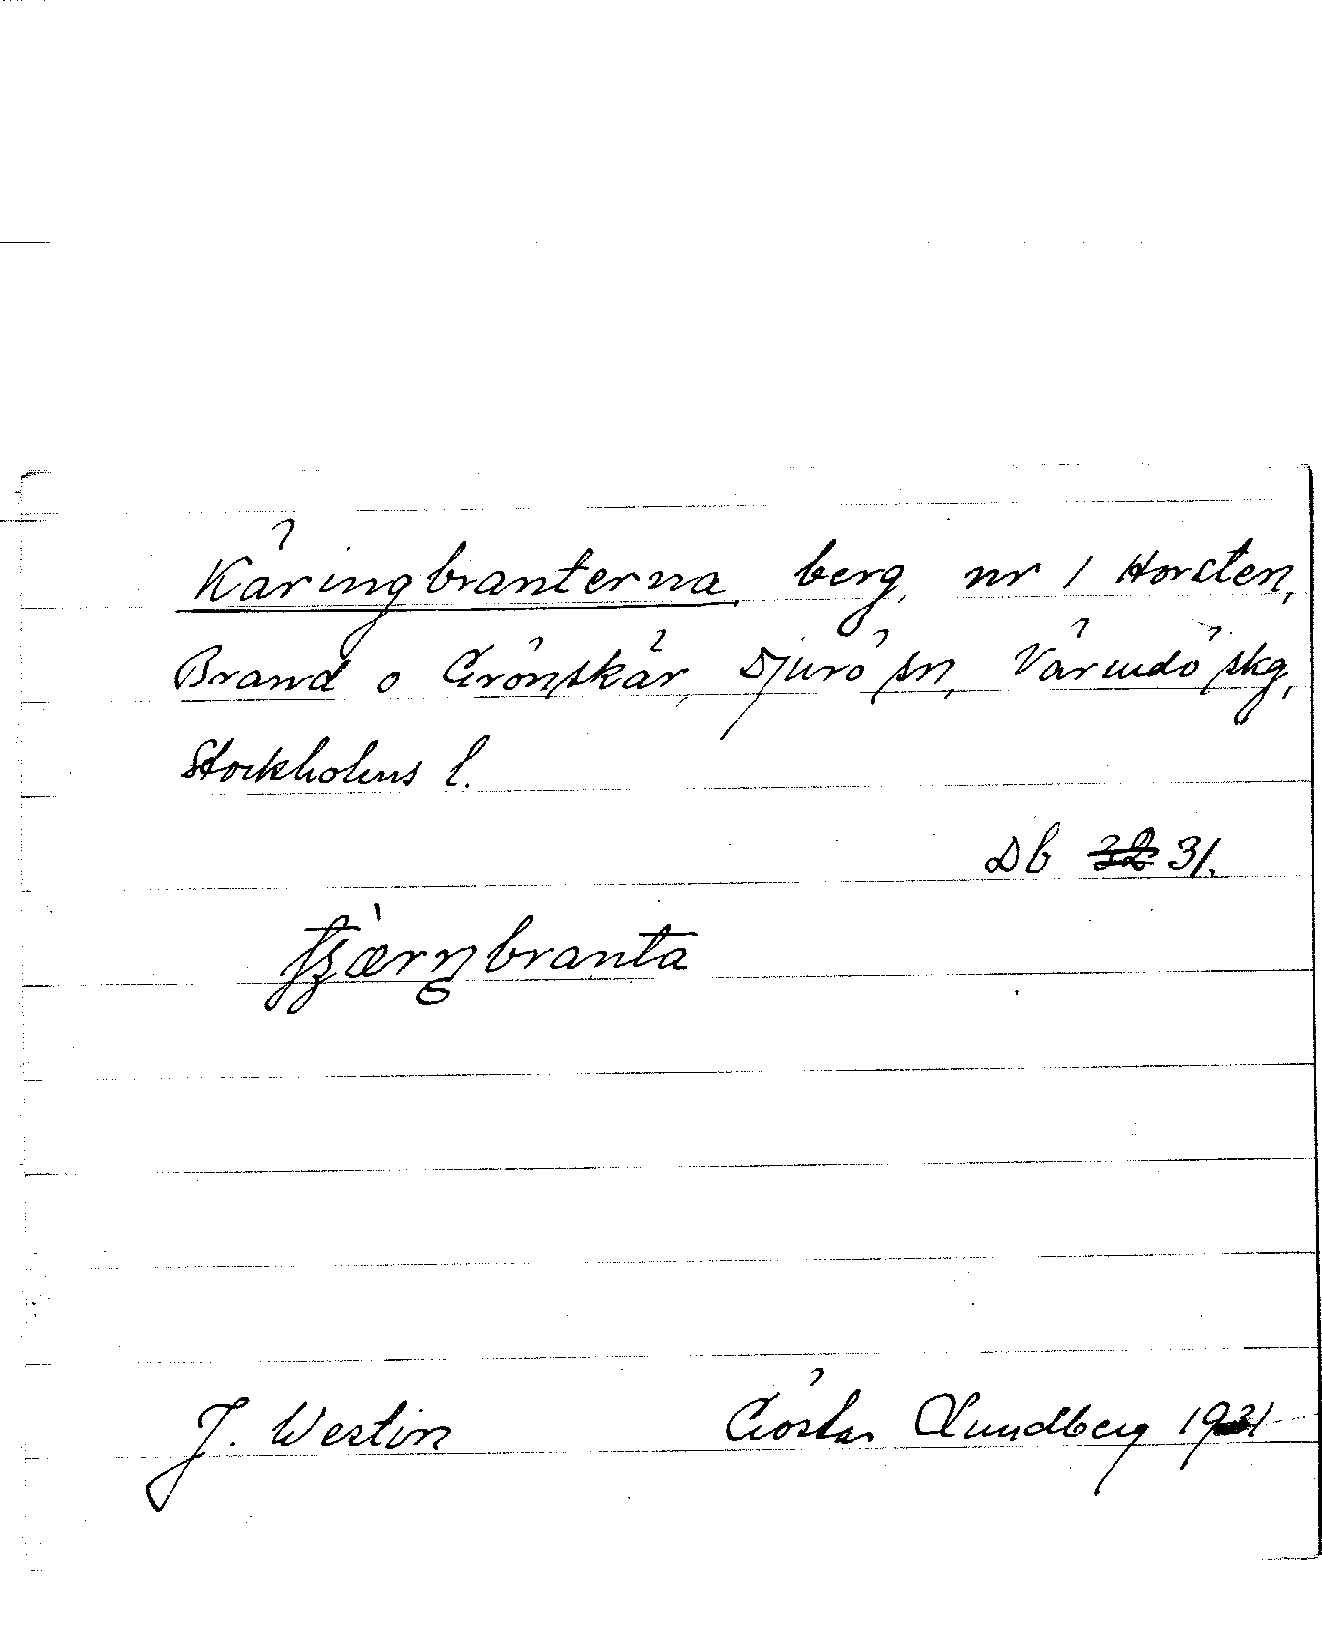 Käringbranterna, berg, nr 1 Horsten,
Brand o Grönskär, Djurö sn, Värmdö skg,
Stockholms l.
Db 32 31.
Gösta Lundberg 1931
J. Westin